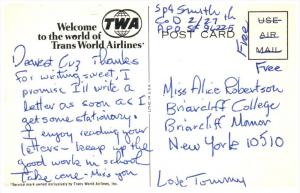 Welcome
to the world of
Trans World Airlines*
TWA
Dearest Cuz Thanks
for writing sweet, I
promise I'll write a
letter as soon as I
get some stationary.
I enjoy reading your
letters - keep up the
good work in school
Take care - Miss you
*Service mark owned exclusively by Trans World Airlines, Inc.
Sp4 Smith
Co D 2/27th
APO SF 96225
POST CARD
USE
AIR
MAIL
Free
Free
Miss Alice Robertson
Briarcliff College
Briarcliff Manor
New York 10510
Love Tommy